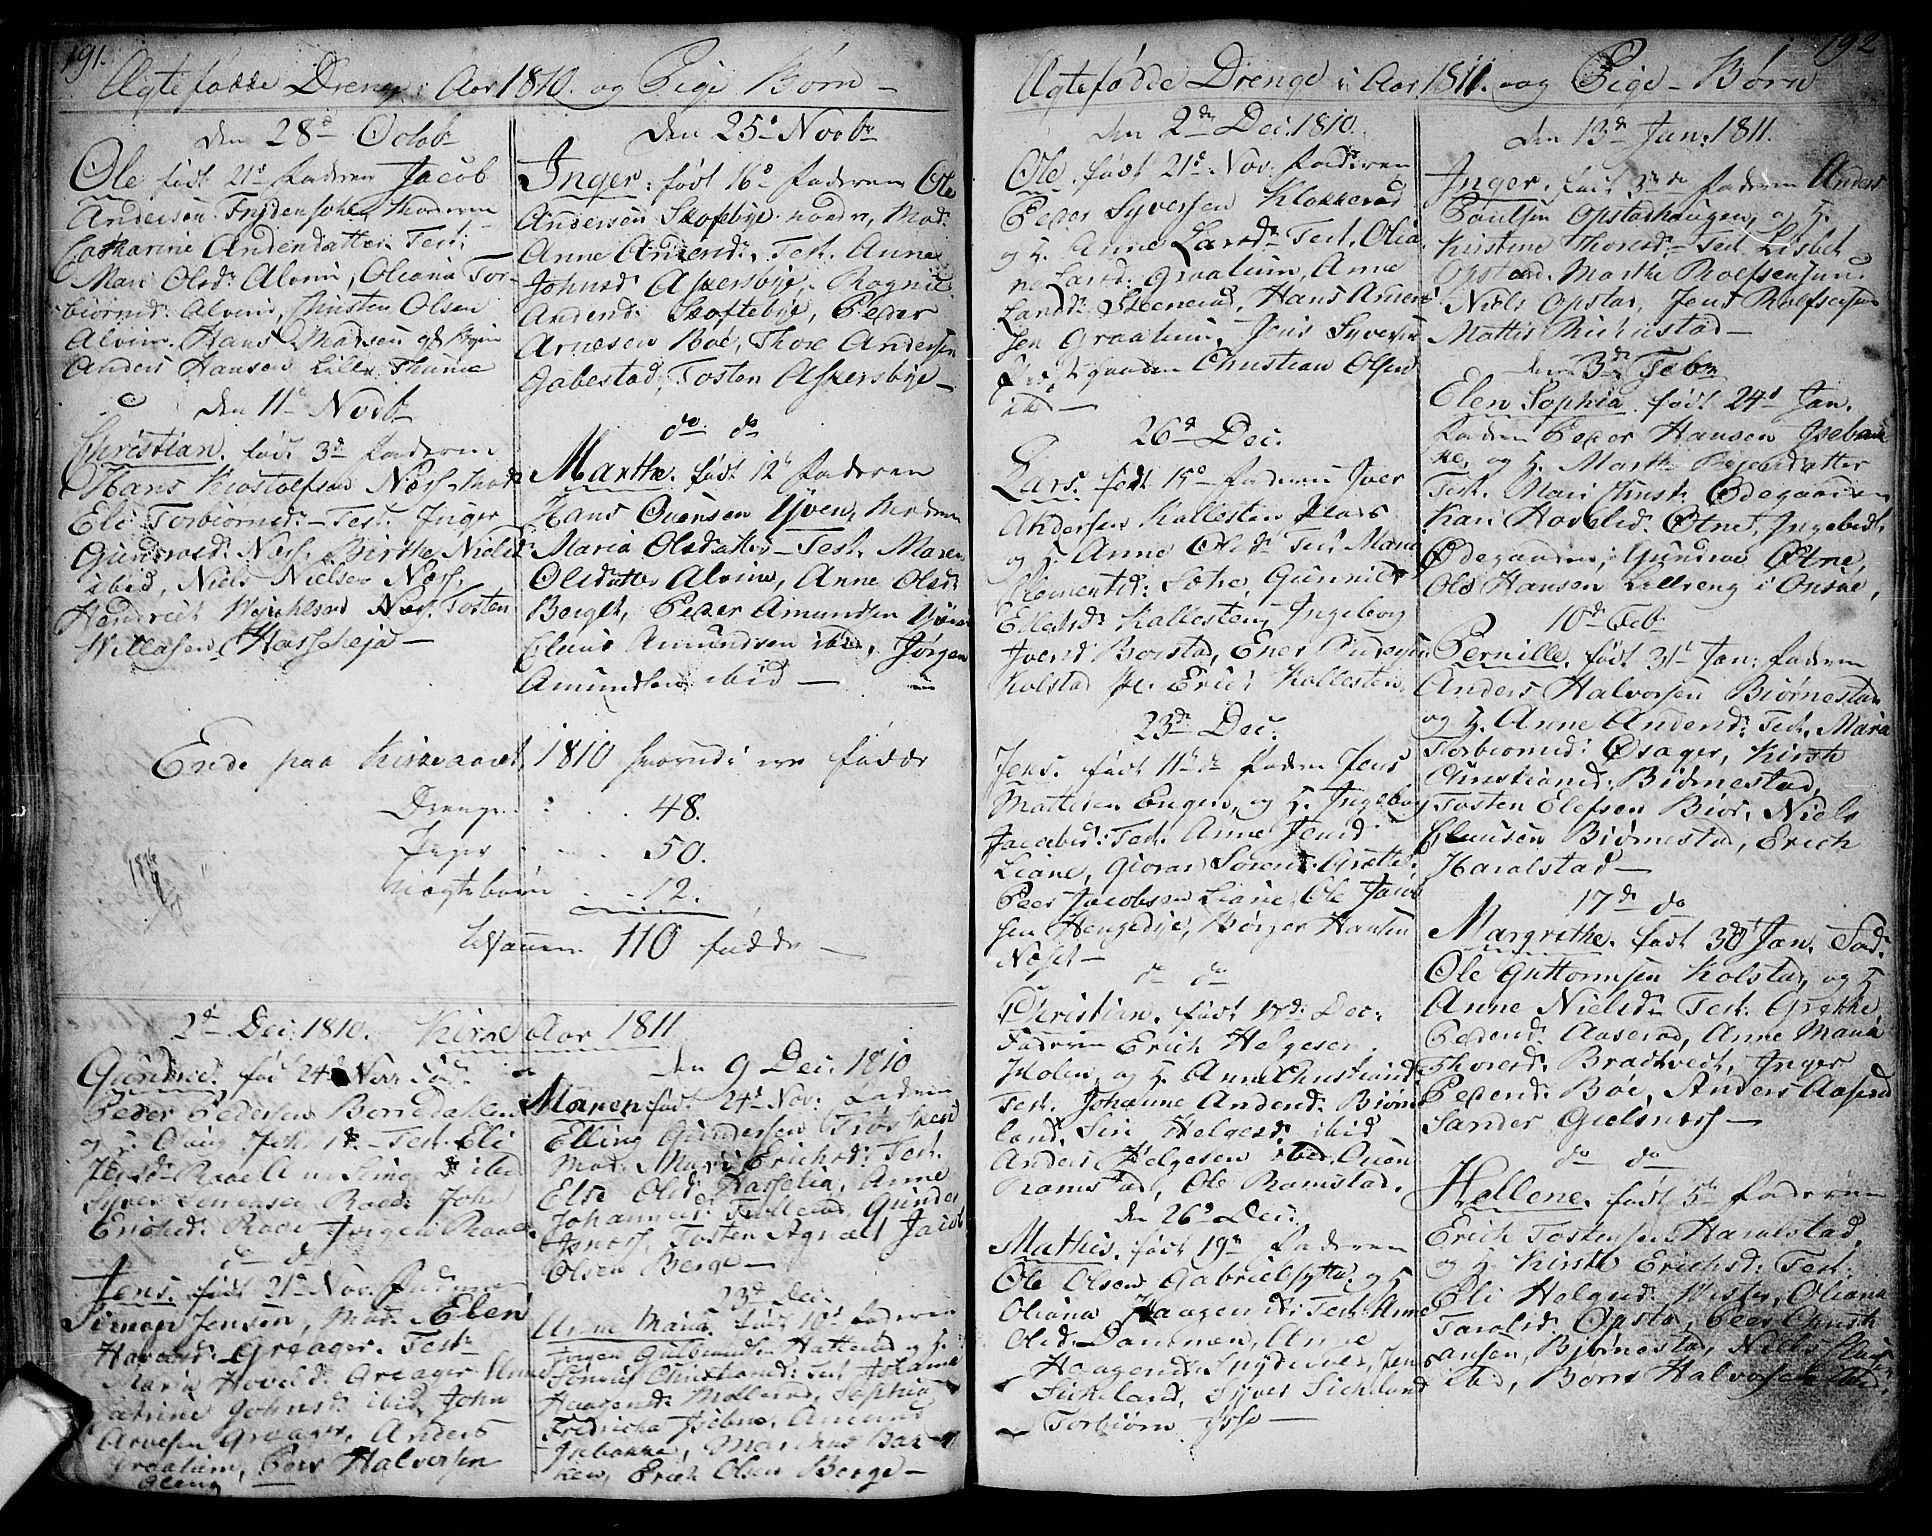 191.
Ægtefødde Drenge i Aar 1810. og Pige Børn —
den 28d Octob
Ole født 21d Faderen Jacob
Andersen Frydensholm Moderen
Catharine Andersdatter Test:
Mari Olsd: Alvim, Oleana Tor-
biørnsd: Alvim, Kristen Olsen
Alvim. Hans Madsen
Anders Hansen Lille Thune
den 11d Novb
Christian. født 3d Faderen
Hans Kiostolfsen Næss Mod
Eli Torbiørnsd: — Test: Inger
Gundersd: Næss. Birthe Nielsd:
ibid, Niels Nielsen Næss,
Hendrich Næss. Tosten
Willasen Hasseleja —
den 25d Novbr
Inger. født 16d Faderen Ole
Andersen Skoftebye nordre, Mod:
Anne Andersd: Test. Anne
Johnsd: Askersbye, Ragnil
Andersd: Skoftebye, Peder
Arnesen Boe, Thore Andersen
Gabestad, Tosten Askersbye —
do do
Marthe. født 12d Faderen
Hans Evensen Moderen
Maria Olsdatter — Test. Maren
Olsdatter Alvim, Anne Olsd:
Berget, Peder Amundsen
Clius Amundsen ibid, Jørgen
Amundsen ibid —
Ende paa Kirkeaaret 1810 hvorudi ere fødde
Drenge . . . 48.
Piger . . . 50.
Uægtebørn . . . 12.
tilsamen 110 fødde —
2d Dec: 1810. Kirke Aar 1811
Gundine, fød 24d Nov: Fad:
Peder Pedersen Borredalen
og H. Test. Eli
Jensd: Raae ibid
Syver Sørensen Raae: John
Erichsd: Raae Jørgen Raae
do do
Jens. født 21d Nov. Faderen
Simon Jensen, Mod: Elen
Haversd: Greager. Test:
Maria Hovelsd: Greager Anne
Catrine Johnsd: ibid, John
Arvesen Greager, Anders
Graalum, Peer Halvorsen
den 9 Dec: 1810
Maren født 24d Nov: Faderen
Elling Gundersen
Mod: Mari Erichsd: Test.
Else Olsd: Hasselia, Anne
Johannesd: Gunder
Tosten Agnalt Jacob
Olsen Berge —
23d Dec:
Anne Maria. født 10d Faderen
Jørgen Gulbrandsen Hattestad og H.
Christiansd: Test Johanne
Haagensd: Møllerød, Sophia
Fredricha Isebac, Amund
Isebakke, Marchus Bak-
ken, Erich Olsen Berge —
192
Ægtefødde Drenge i Aar 1811. og Pige-Børn
den 2den Dec: 1810.
Ole. født 21d Nov: Faderen
Peder Syversen Klokkerød
og H. Anne Larsdr Test. Olia-
ne Larsd: Graalum, Anne
Larsd: Steenerød, Hans Arne-
sen Graalum, Jens Syversen
gaarden Christian Olsen
ibid —
26d Dec:
Lars. født 15d Faderen Iver
Andersen Kallesten Plads
og H. Anne Olsdr Test. Maria
Clementsd: Sæter, Gunnild
Kallesten, Ingeborg
Iversd Borstad, Ener
Kolstad Pl. Erich Kallesten.
23de Dec:
Jens. født 11d Faderen Jens
Mattesen Engen, og H. Ingeborg
Jacobsd: Test. Anne Jensd:
Liane, Grette:
Peer Jacobsen Liane Ole Jacob-
sen Hengedye, Børger Hansen
Noset —
do do
Christian. født 17d: Dec:
Faderen Erich Helgesen
Holen, og H. Anne Christiansd:
Test. Johanne Andersd: Biørne-
land, Siri Helgesd: ibid
Anders Helgesen ibid, Even
Ramstad, Ole Ramstad.
den 26d Dec:
Mathis. født 19de Faderen
Ole Olsen Gabrielhytte: og H
Oliana Haagensd: Test: Anne
Olsd: Dammen, Anne
Haagensd: Spydever, Jens
Sickeland, Syver Sickeland
Torbiørn —
den 13de Jan: 1811.
Inger. født 3de Faderen Anders
Poulsen Opstadhaugen, og H.
Kirstine Thoresd: Test Lisbet
Opstad, Marthe Rolfsensund
Niels Opstad, Jens Rolfsøesun
Mattis Mickelstad —
den 3de Febr
Elen Sophia. født 24d Jan.
Faderen Peder Hansen Isebak-
ke, og H. Marthe
Test. Mari Ødegaarden
Kari Hovelsd: Øtne, Ingebrdt.
Ødegaarden, Gundine Øtne,
Ole Hansen Lilleeng i Onsøe,
10de Feb
Pernille. født 31d Jan: Faderen
Anders Halvorsen Biørnestad
og H. Anne Andersd: Test. Maria
Torbiørnsd: Øsager, Kirsti
Christiansd: Biørnestad,
Tosten Elefsen Bior, Niels
Clausen Biørnestad, Erich
Haralstad —
17de do
Margrethe. født 30d Jan. Fad:
Ole Guttormsen Kolstad, og H.
Anne Nielsd: Test: Grethe
Pedersd: Aaserød, Anne Maria
Thoresd: Bradtvedt, Inger
Pedersd: Boe, Anders Aaserød
Sander Gielsness —
do do
Hellene. født 5te Faderen
Erich Tostensen Haralstad,
og H. Kirsti Erichsd: Test:
Eli Helgesd: Vister, Oliana
Taralsd: Opstad, Peer Christi-
ansen, Bjørnestad, Niels
ibid, Børre Halvorsen ibid.